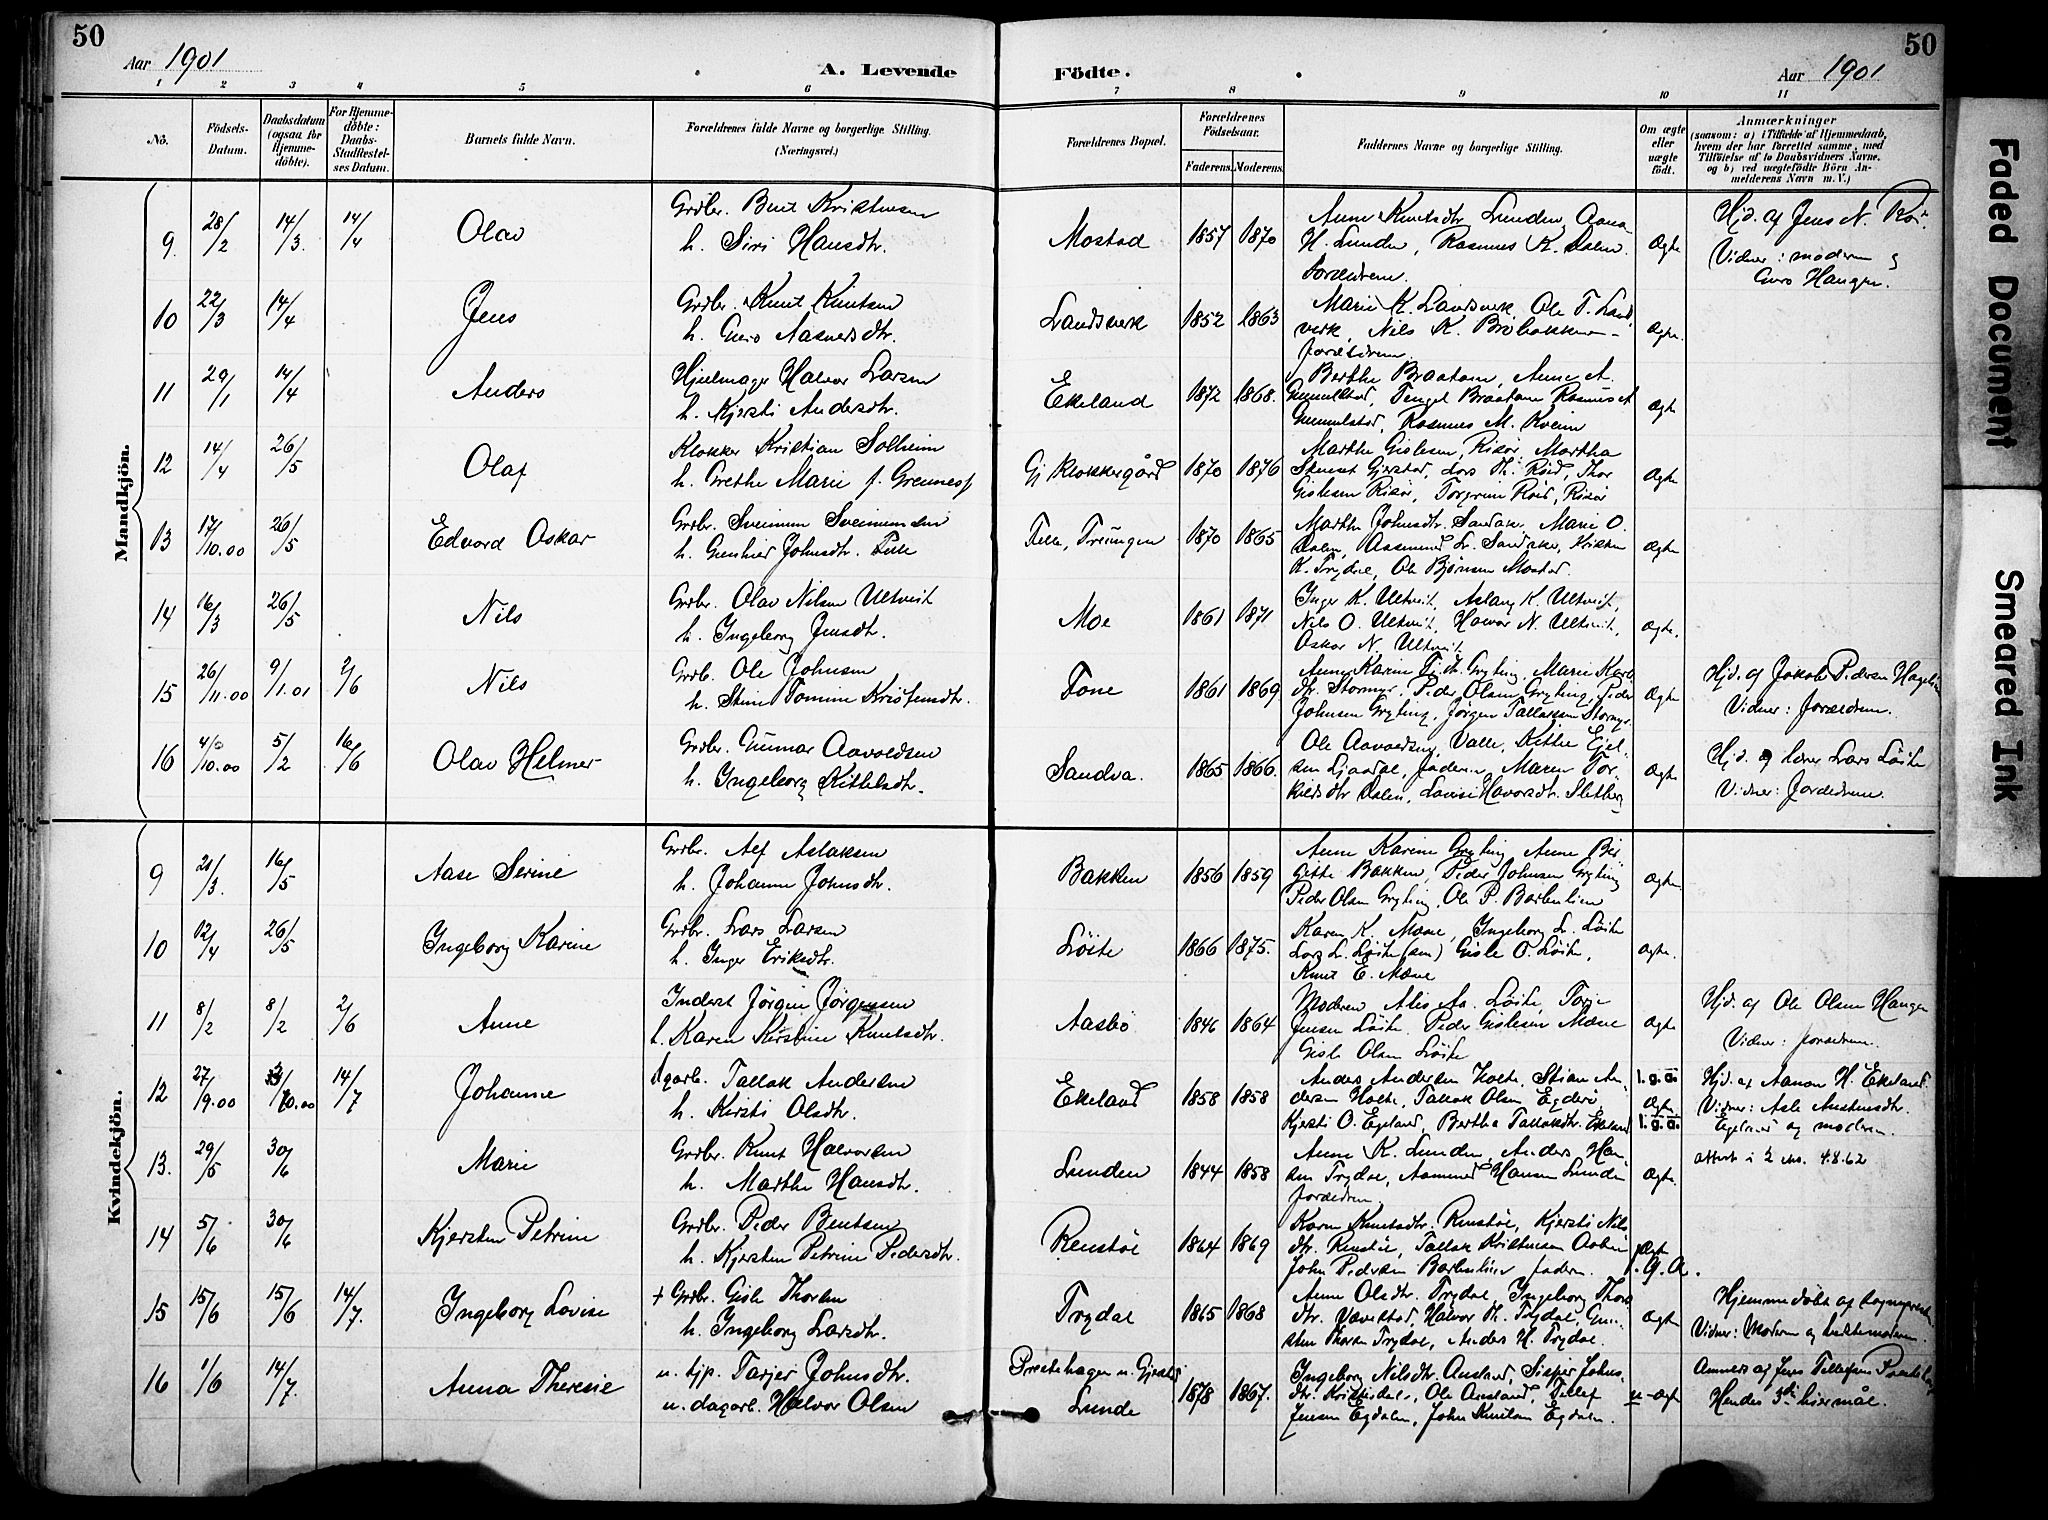 50
Aar 1901
A. Levende
Födte.
Aar 1901
50
1 2 3 4 5 6 7 8 9 10 11
No.
Födsels-Datum.
Daabsdatum (ogsaa for Hjemme-döbte).
For Hjemme-döbte: Daabs-Stadfestel-ses Datum.
Barnets fulde Navn.
Forældrenes fulde Navne og borgerlige Stilling. (Næringsvei.)
Forældrenes Bopæl.
Forældrenes Födselsaar.
Faderens. Moderens.
Faddernes Navne og borgerlige Stilling.
Om ægte eller uægte födt.
Anmærkninger
(saasom: a) i Tilfælde af Hjemmedaab,
hvem der har forrettet samme, med
Tilföielse af to Daabsvidners Navne,
og b) ved uægtefödte Börn An-
melderens Navn m. V.)
Mandkjön.
9. 28/2 14/3. 14/4 Olav
Grdbr. Bent Kristensen
h. Siri Hansdtr.
Mostad 1857 1870
Anne Knutsdtr. Lunden, Aana
H. Lunden, Rasmus K. Dalen.
Forældrene.
Ægte
Hjd. af Jens N.
Vidner: moderen og
Guro Haugen.
10 22/3 14/4 Jens
Grdbr. Knut Knutsen
h. Guro Aasmersdtr.
Landsverk 1852 1863
Marie K. Landsverk, Ole T. Land-
verk, Nils K. Brobakken
forældrene.
Ægte.
11 29/1 14/4 Anders
Hjulmager Halvor Larsen
h. Kjersti Andersdtr.
Ekeland 1872 1868.
Berthe Braaten, Anne A.
Gummelstad, Tengel Braaten Rasmus A
Gummelstad, Rasmus M. Kveim
Ægte
12 14/4 26/5 Olaf
Klokker Kristian Solheim
h. Grethe Marie f. Grennes
Gj Klokkergård 1870 1876
Marthe Gislesen, Risör, Martha
Gjerstad, Lars Th. Röed, Thor
Gislesen Risör, Torgrim Röed, Risör
Ægte
13 17/10.00 26/5 Edvard Oskar
Grdbr. Sveinum Sveinumsen
h. Gunhild Johnsdtr. Felle
Felle, Treungen 1870 1865
Marthe Johnsdtr. Sandaker, Marie O.
Dalen, Aasmund L. Sandaker, Kristen
K. Trydal, Ole Björnsen Mostad.
Ægte
14 16/3 26/5 Nils
Grdbr. Olav Nilsen Ultveit
h. Ingeborg Jensdtr.
Moe 1861 1871
Inger K. Ultveit, Aslaug K. Ultveit,
Nils O. Ultveit, Halvor N. Ultveit,
Oskar N. Ultveit
Ægte.
15 26/11.00 9/1.01 2/6 Nils
Grdb. Ole Johnsen
h. Stine Tomine Kristensdtr.
Tone 1861 1869
Anne Karine Gryting, Marie Karl-
dtr. Stormyr, Peder Olsen Gryting, Peder
Johnsen Gryting, Jörgen Tallaksen Stormyr.
Ægte
Hjd. af Jakob Pedersen
Vidner: forældrene.
16 4/10.00 5/2 16/6 Olav Helmer
Grdbr. Gunnar Aavoldsen
h. Ingeborg Kittelsdtr.
Sandva. 1865 1866.
Ole Aavoldsen Valle,
faderen, Maren Tor-
kildsdtr Dalen, Lovise Halvorsdtr. Sletberg
Ægte
Hjd. af lærer Lars Löite
Vidner: Forældrene.
Kvindekjön.
9 21/3. 16/5 Aase Serine
Grdbr. Alf Aslaksen
h. Johanne Johnsdtr.
Bakken 1856 1859
Anne Karine Gryting, Anne Bir-
gitte Bakken, Peder Johnsen Gryting
Peder Olsen Gryting, Ole P. Barlinlien
Ægte
10 12/4 26/5 Ingeborg Karine
Grdbr. Lars Larsen
h. Inger Eriksdtr.
Löite 1866 1875.
Karen K. Mæne, Ingeborg L. Löite
Lars L. Löite (sen) Gisle O. Löite,
Knut E. Mæne
ægte.
11 8/2 8/2 2/6 Anne
Inderst Jörgen Jörgensen
h. Karen Kirstine Knutsdtr.
Aasbö 1846 1864
Moderen, Alis Aa. Löite, Torje
Jensen Löite, Peder Gislesen Mæne
Gisle Olsen Löite
Ægte
Hjd. af Ole Olsen Haugen
Vidner: forældrene.
12 27/9.00 /10.00 14/7 Johanne
dgarb. Tallak Andersen
h. Kirsti Olsdtr.
Ekeland 1858 1858
Anders Andersen Holte, Stian An-
dersen Holte, Tallak Olsen
Kjersti O. Egeland, Bertha Tallaksdtr. Ekeland
l.g.a. Ægte l.g.a.
Hjd. af Aanon H. Ekeland.
Vidner: Asle Austensdtr.
Egeland og moderen.
13. 29/5 30/6 Marie
Grdbr. Knut Halvorsen
h. Marthe Hansdtr.
Lunden 1844 1858
Anne K. Lunden, Anders Han-
sen Trydal, Aasmund Hansen Lunden
forældrene.
Ægte.
attest i 2 eks. 4.8.62
14 5/6 30/6 Kjersten Petrine
Grdbr. Peder Bentsen
h. Kjersten Petrine Pedersdtr.
Renstöl 1864 1869
Karen Knutsdtr. Renstöl, Kjersti Nils
dtr. Renstöl, Tallak Kristensen Aasbö
John Pedersen Barlinlien faderen.
Ægte
l.g.a.
15 15/6 15/6 14/7. Ingeborg Lovise
+ Grdbr. Gisle Thorsen
h. Ingeborg Larsdtr.
Trydal 1865 1868
Anne Olsdtr. Trydal, Ingeborg Thors
dtr. Vævestad, Halvor Th. Trydal, Gun-
sten Thorsen Trydal, Anders H. Trydal.
ægte
Hjemmedöbt af sogneprest.
Vidner: Moderen og bestemoderen.
16 1/6 14/7. Anna Therese
u. tjp. Tarjer Johnsdtr.
u. dagarb. Halvor Olsen
Prestehagen u. Gjerstad
Lunde 1878 1867.
Ingeborg Nilsdtr. Ausland, Johns-
dtr. Kristidal, Ole Ausland, Tellef
Jensen Egdalen, John Knutsen Egdalen.
u-ægte
Anmeld. af Jens Tellefsen
Hendes 3die leiermål.
Faded Document
Smeared Ink